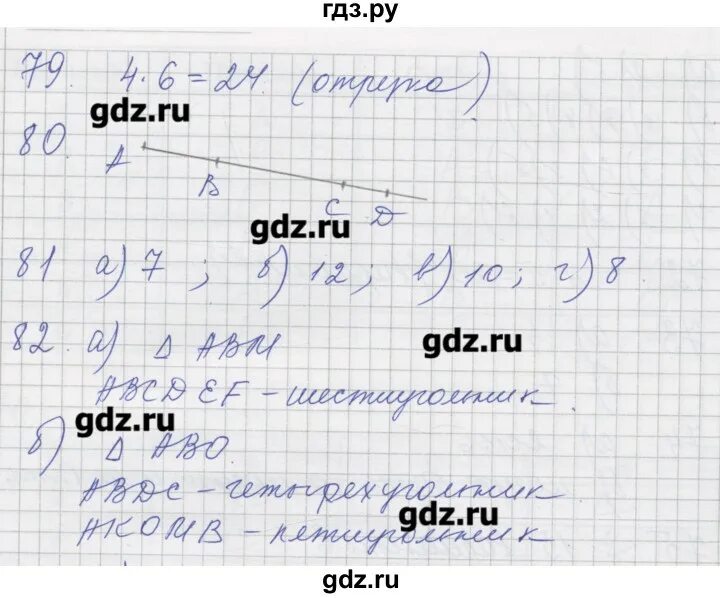 гдз.ру
79. 4·6=24. (отрезка)
gdz.ru
80.
A
B
C D
gdz.ru
81 а) 7 ; б) 12 ; в) 10 ; г) 8.
82. а) Δ ABM
gdz.ru
ABCDEF – шестиугольник.
gdz.ru
б) Δ ABO.
ABDC – четырехугольник
gdz.ru
AKOMB – пятиугольник.
gdz.ru